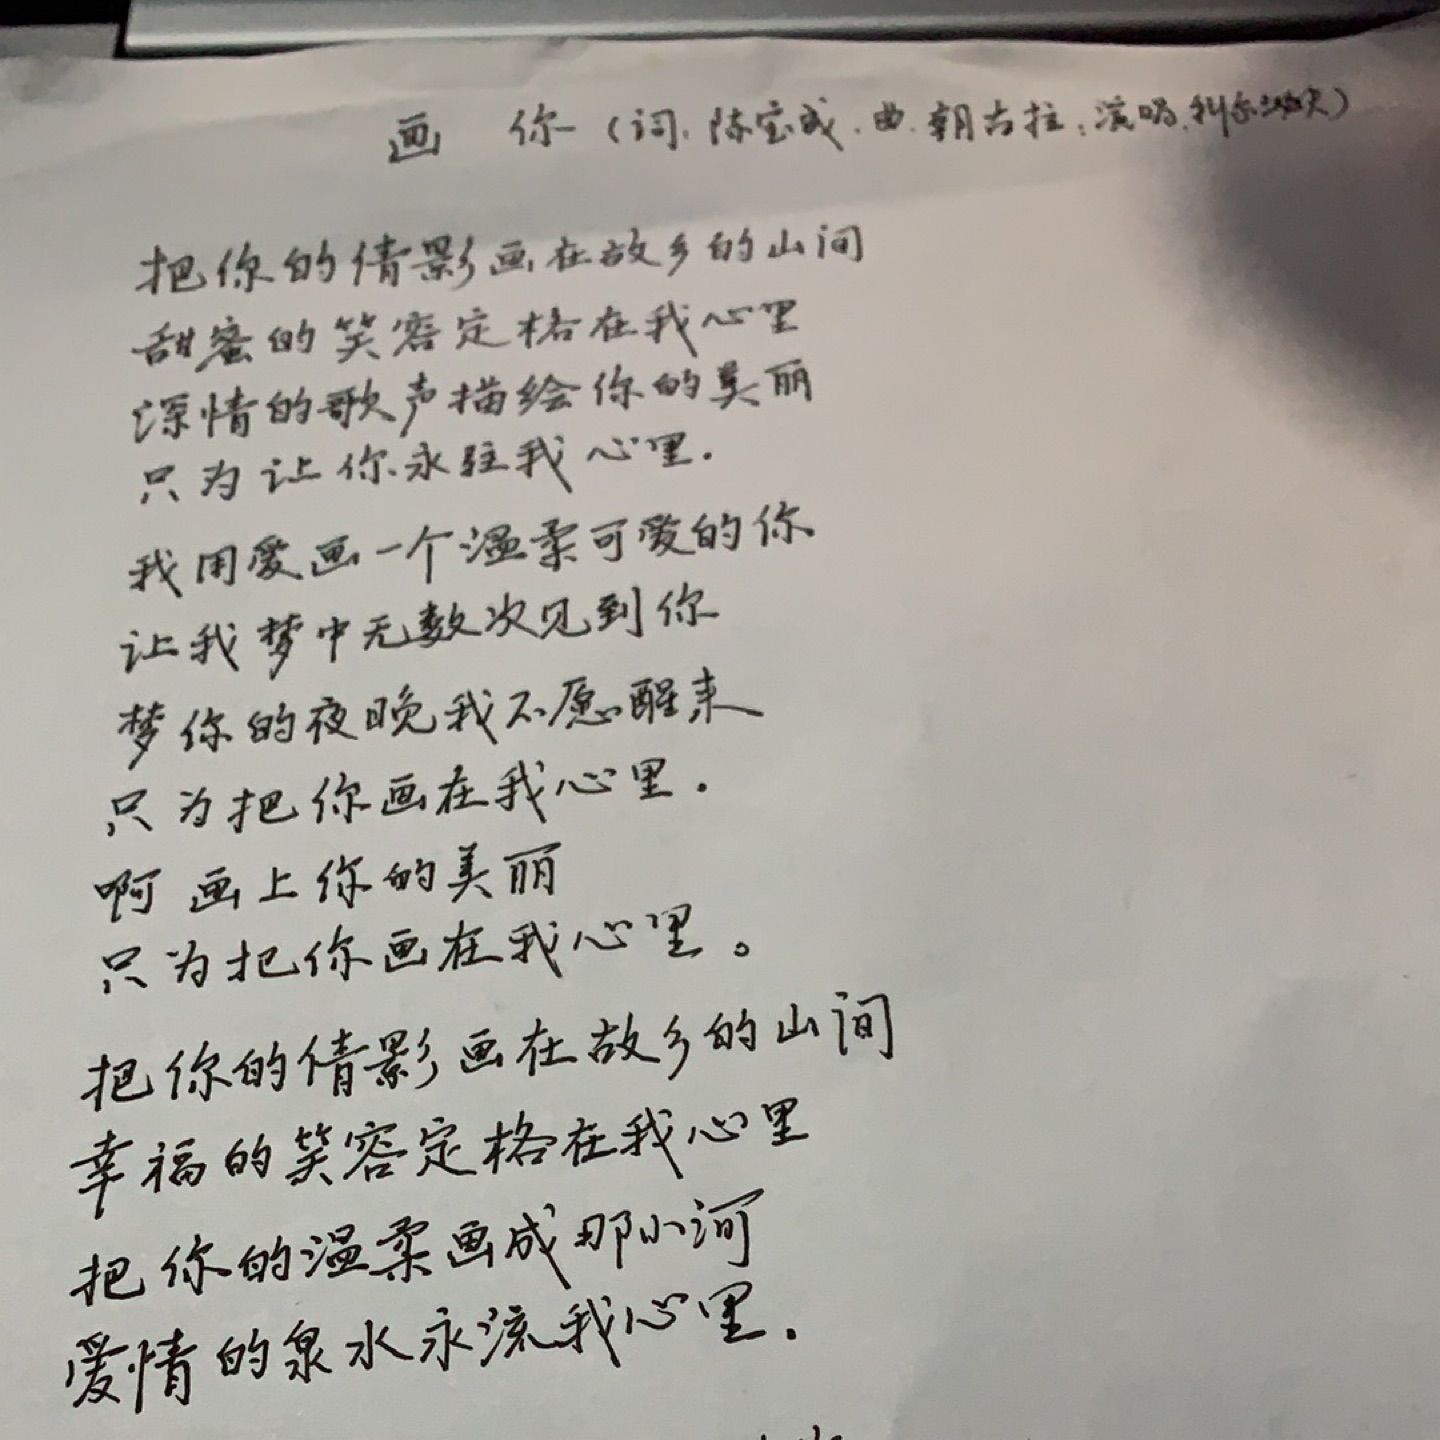 画 你（词、陈宝成、曲、朝古拉、演唱、利尔
把你的倩影画在故乡的山间
甜蜜的笑容定格在我心里
深情的歌声描绘你的美丽
只为让你永驻我心里.
我用爱画一个温柔可爱的你
让我梦中无数次见到你
梦你的夜晚我不愿醒来
只为把你画在我心里.
啊 画上你的美丽
只为把你画在我心里。
把你的倩影画在故乡的山间
幸福的笑容定格在我心里
把你的温柔画成那小河
爱情的泉水永流我心里.